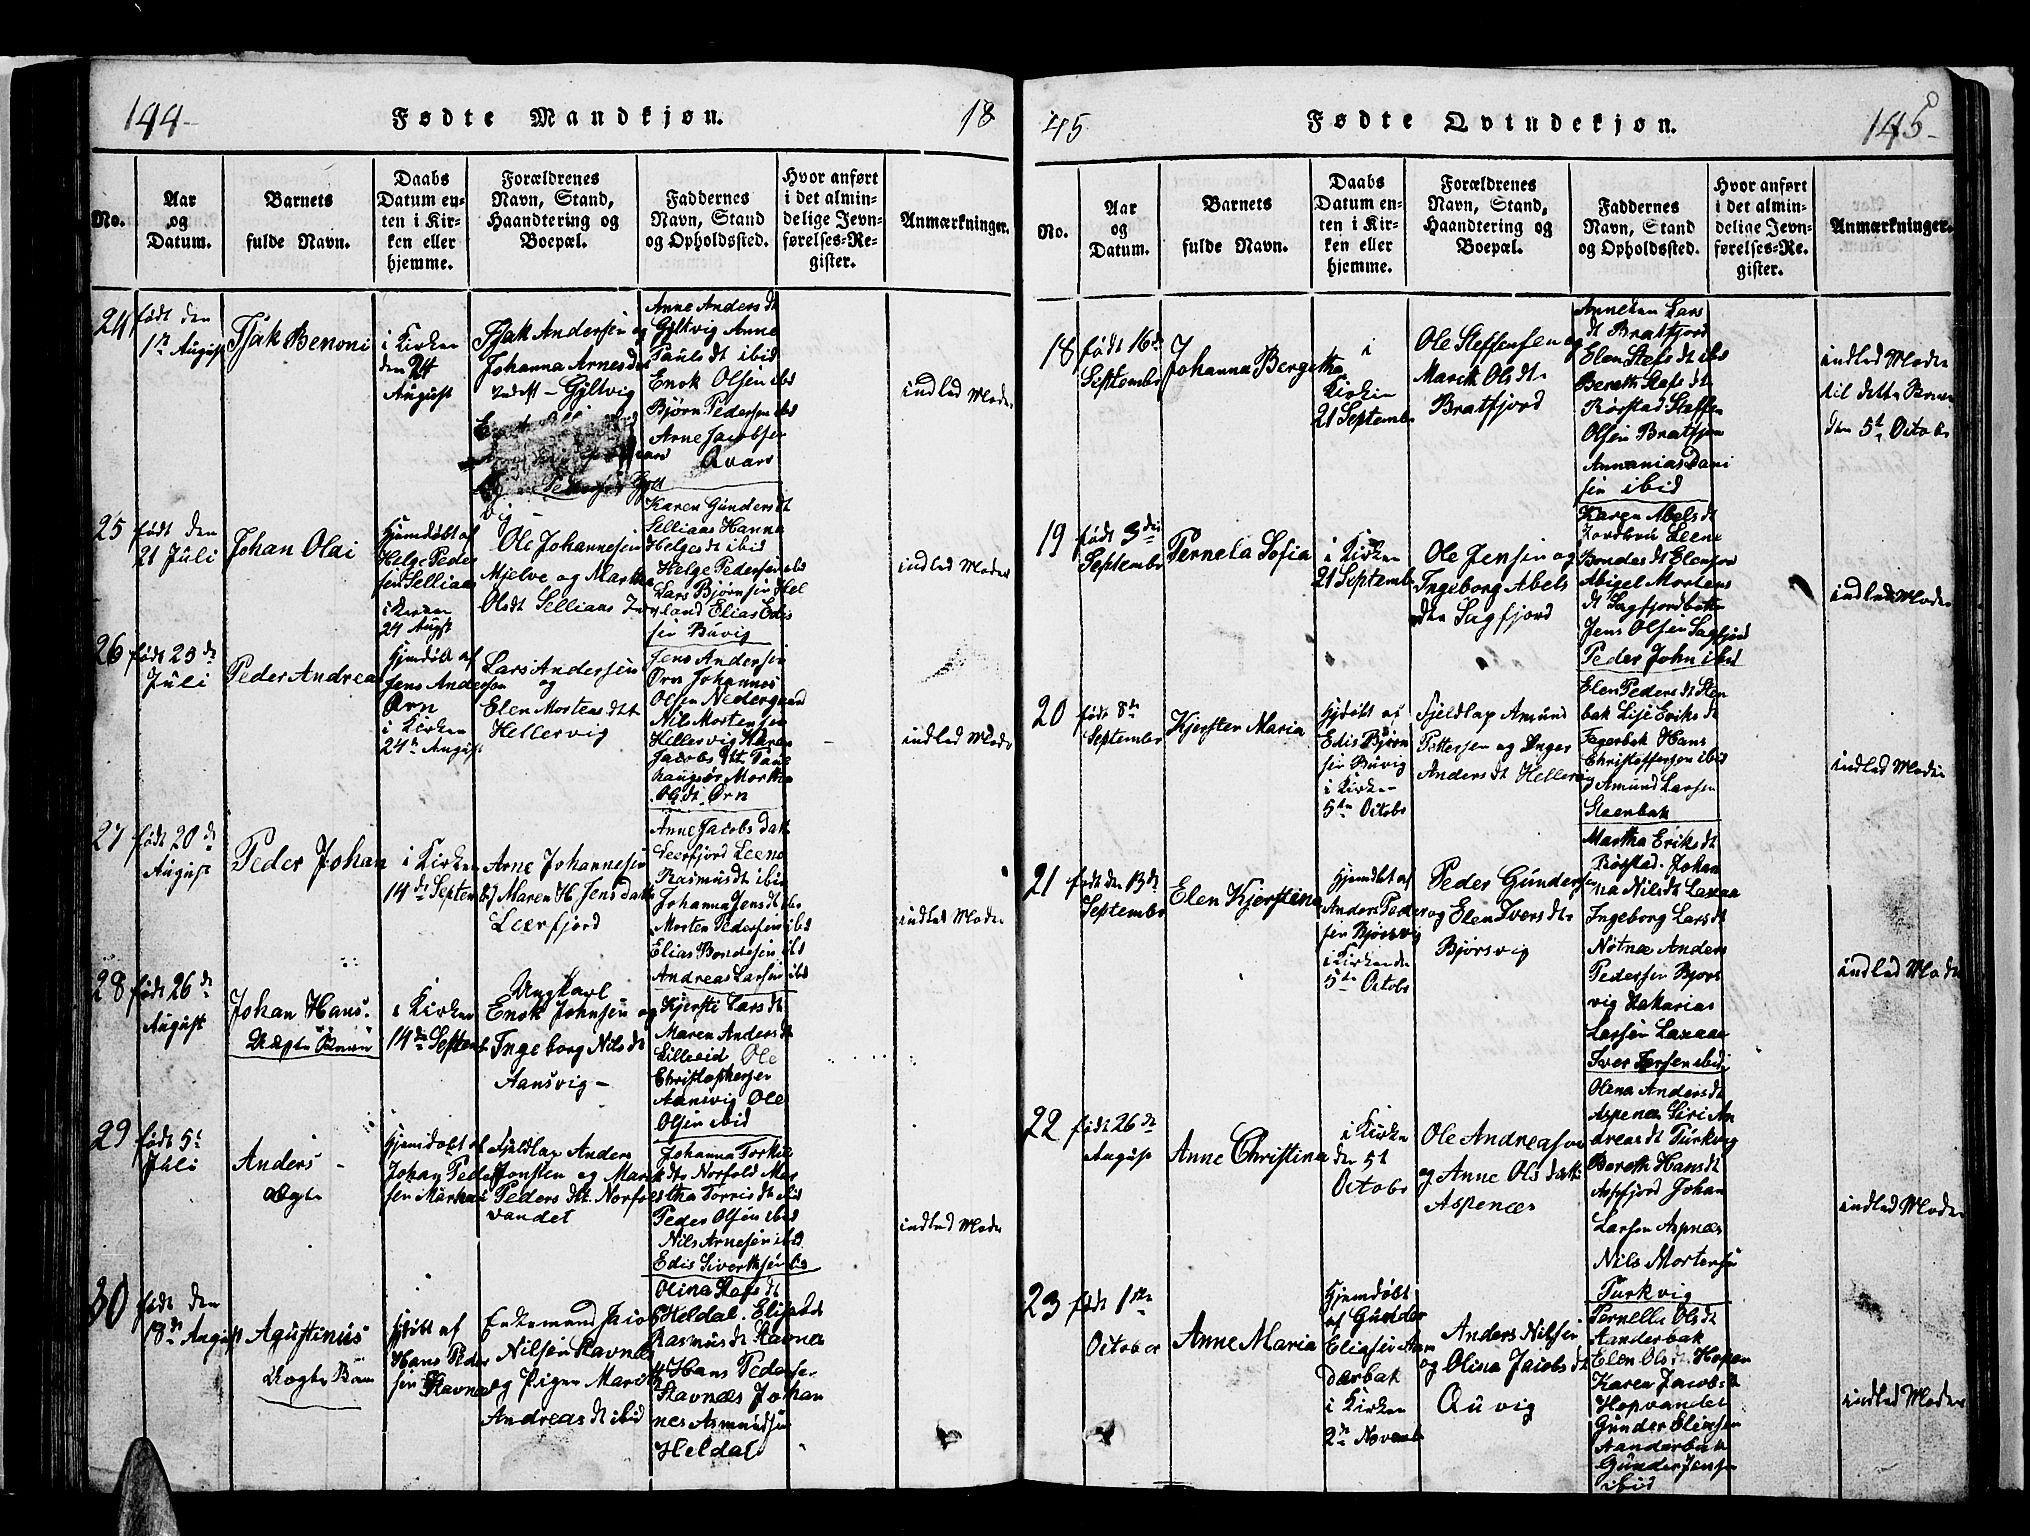 144-
Fødte Mandkjøn.
18
No.
Aar
og
Datum.
Barnets
fulde Navn.
Daabs
Datum en-
ten i Kir-
ken eller
hjemme.
Forældrenes
Navn, Stand,
Haandtering og
Boepæl.
Faddernes
Navn, Stand
og Opholdssted.
Hvor anført
i det almin-
delige Jevn-
førelses-Re-
gister.
Anmærkninger.
24
født den
August
Isak Benoni
i Kirken
den 24
August
Isak Andersen og
Johanna Arnesdt
Gyltvig
Anne Andersdt
Gyltvig Anne
Paulsdt ibid
Enok Olsen ibd
Bjørn Pedersen ibd
Arne Jacobsen
Qvars
indled Moder
25
født den
21 Juli
Johan Olai
Hjemdøbt af
Helge Peder
sen Selliaas
i Kirken
24 Augst
Ole Johannesen
Mjelve og Martha
Olsdt Selliaas
Karen Gundersdt
Selliaas Hanna
Helgesdt ibid
Helge Pedersen ibd
Lars Bjørnsen Hel
land Elias Edis
sen Buvig
indled Moder
26
født 25de
Juli
Peder Andrea
Hjemdøbt af
Jens Andersen
Ørn
i Kirken
24de August
Lars Andersen
og
Elen Mortensdtt
Hellervig
Jens Andersen
Ørn Johannes
Olsen Nedergaard
Nils Mortensen
Hellervig Karen
Jacobsdtt
Martha
Olsdt. Ørn
indled Moder
27
født 20de
August
Peder Johan
i Kirken
14de Septemb
Arne Johannesen
og Maren H. Jensdatt
Leerfjord
Anne Jacobsdatt
Leerfjord Leena
Rasmusdt ibid
Johanna Jensdt ibd
Morten Pedersen ibd
Elias Bondesen ibd
Andreas Larsen ibd
indled Moder
28
født 26de
August
Johan Hans.
Uægte Barn
i Kirken
14de Septemb
Ungkarl
Enok Johnsen og
Ingeborg Nilsdt
Aansvig-
Kjersti Larsdt
Maren Andersdt
Lilleeid Ole
Christophersen
Aansvig Ole
Olsen ibid
29
født 5t
Juli
Anders -
ægte
Hjemdøbt af
Johan Peder
sen
Fjeldlap Anders
Jonsen og Marit
Pedersdtt. Norfold
vandet
Johanna Torkils
dtr Norfold Mar
tha Torrisdt ibid
Peder Olsen ibid
Nils Arnesen ibid
Edis Sivertsen ibid
indled Moder
30
født den
18de August
Agustinus
Uægte Barn
Hjdøbt af
Hans Peder
sen Stavnæs
Enkemand Jacob
Nilsen Stavnæs
og Pigen Marith
Andreasdt ibid
Olina Stafsdt
Heldal. Elisabet
Rasmusdt Stavnæs
Hans Pedersen
Stavnæs Johan
nes Asmundsen
Heldal
45
Fødte Qvindekjøn.
145-
No.
Aar
og
Datum.
Barnets
fulde Navn.
Daabs
Datum en-
ten i Kir-
ken eller
hjemme.
Forældrenes
Navn, Stand,
Haandtering og
Boepæl.
Faddernes
Navn, Stand
og Opholdssted.
Hvor anført
i det almin-
delige Jevn-
førelses-Re-
gister.
Anmærkninger.
18
født 16de
September
Johanna Bergetha
i
Kirken
21 Septembr
Ole Steffensen og
Marith Olsdtr
Bratfjord
Anneken Lars
dt Bratfjord
Elen Stefsdt ibd
Bereth Stafsdt
Rørstad Steffen
Olsen Bratfjor
Annanias Dani
sen ibid
indled Moder
til dette Barn
den 5t Octobr
19
født 3die
Septembr
Pernela Sofia
i Kirken
21 Septembr
Ole Jensen og
Ingeborg Abels
dtr Sagfjord
Karen Abelsdt
Leene
Bondesdt
Abigel Mortens
dt Sagfjordbotn
Jens Olsen Sagfjord
Peder John ibid
indled Moder
20
født 8de
Septembr
Kjersten Maria
Hjdøbt af
Edis Bjørn
sen Buvig
i Kirken
5te Octobr
Fjeldlap Amund
Pettersen og Inger
Andersdt Hellervig
Elen Pedersdt Sten
bak Lise Eriksdt
Fagerbak Hans
Christoffersen ibid
Amund Larsen
Steenbak
indled Moder
21
født den 13de
Septembr
Elen Kjerstina
Hjemdbt af
Anders Peder
sen Bjørsvig
i Kirken den
5te Octobr
Peder Gundersen
og Elen Iversdtr
Bjørsvig
Martha Eriksdt
Rørstad. Johan
na Nilsdt Laxaa
Ingeborg Larsdt
Nøtnæs Anders
Pedersen Bjørs
vig Zakarias
Larsen Laxaae
Iver Jersen ibid
indled Moder
22
født 26de
August
Anne Christina
i Kirken
den 5t
Octobr
Ole Andreasen
og Anne Olsdatt
Aspenæs
Olena Andersdt
Aspenæs Siri An
dreasdt Turkvig
Bereth Hansdt
Aspfjord Johan
Larsen Aspnæs
Nils Mortensen
Turkvig
indled Moder
23
født 1ste
October
Anne Maria
Hjemdøbt
af Gunder
Eliasen Aan
derbak
i Kirken
2de Novemb
Anders Nilsen
og Olina Jacobsdt
Quvig
Pernella Olsdt
Aanderbak
Elen Olsdt Hopen
Karen Jacobsdt
Hopvandet
Gunder Eliasen
Aanderbak
Gunder Jensen
ibid
indled Moder